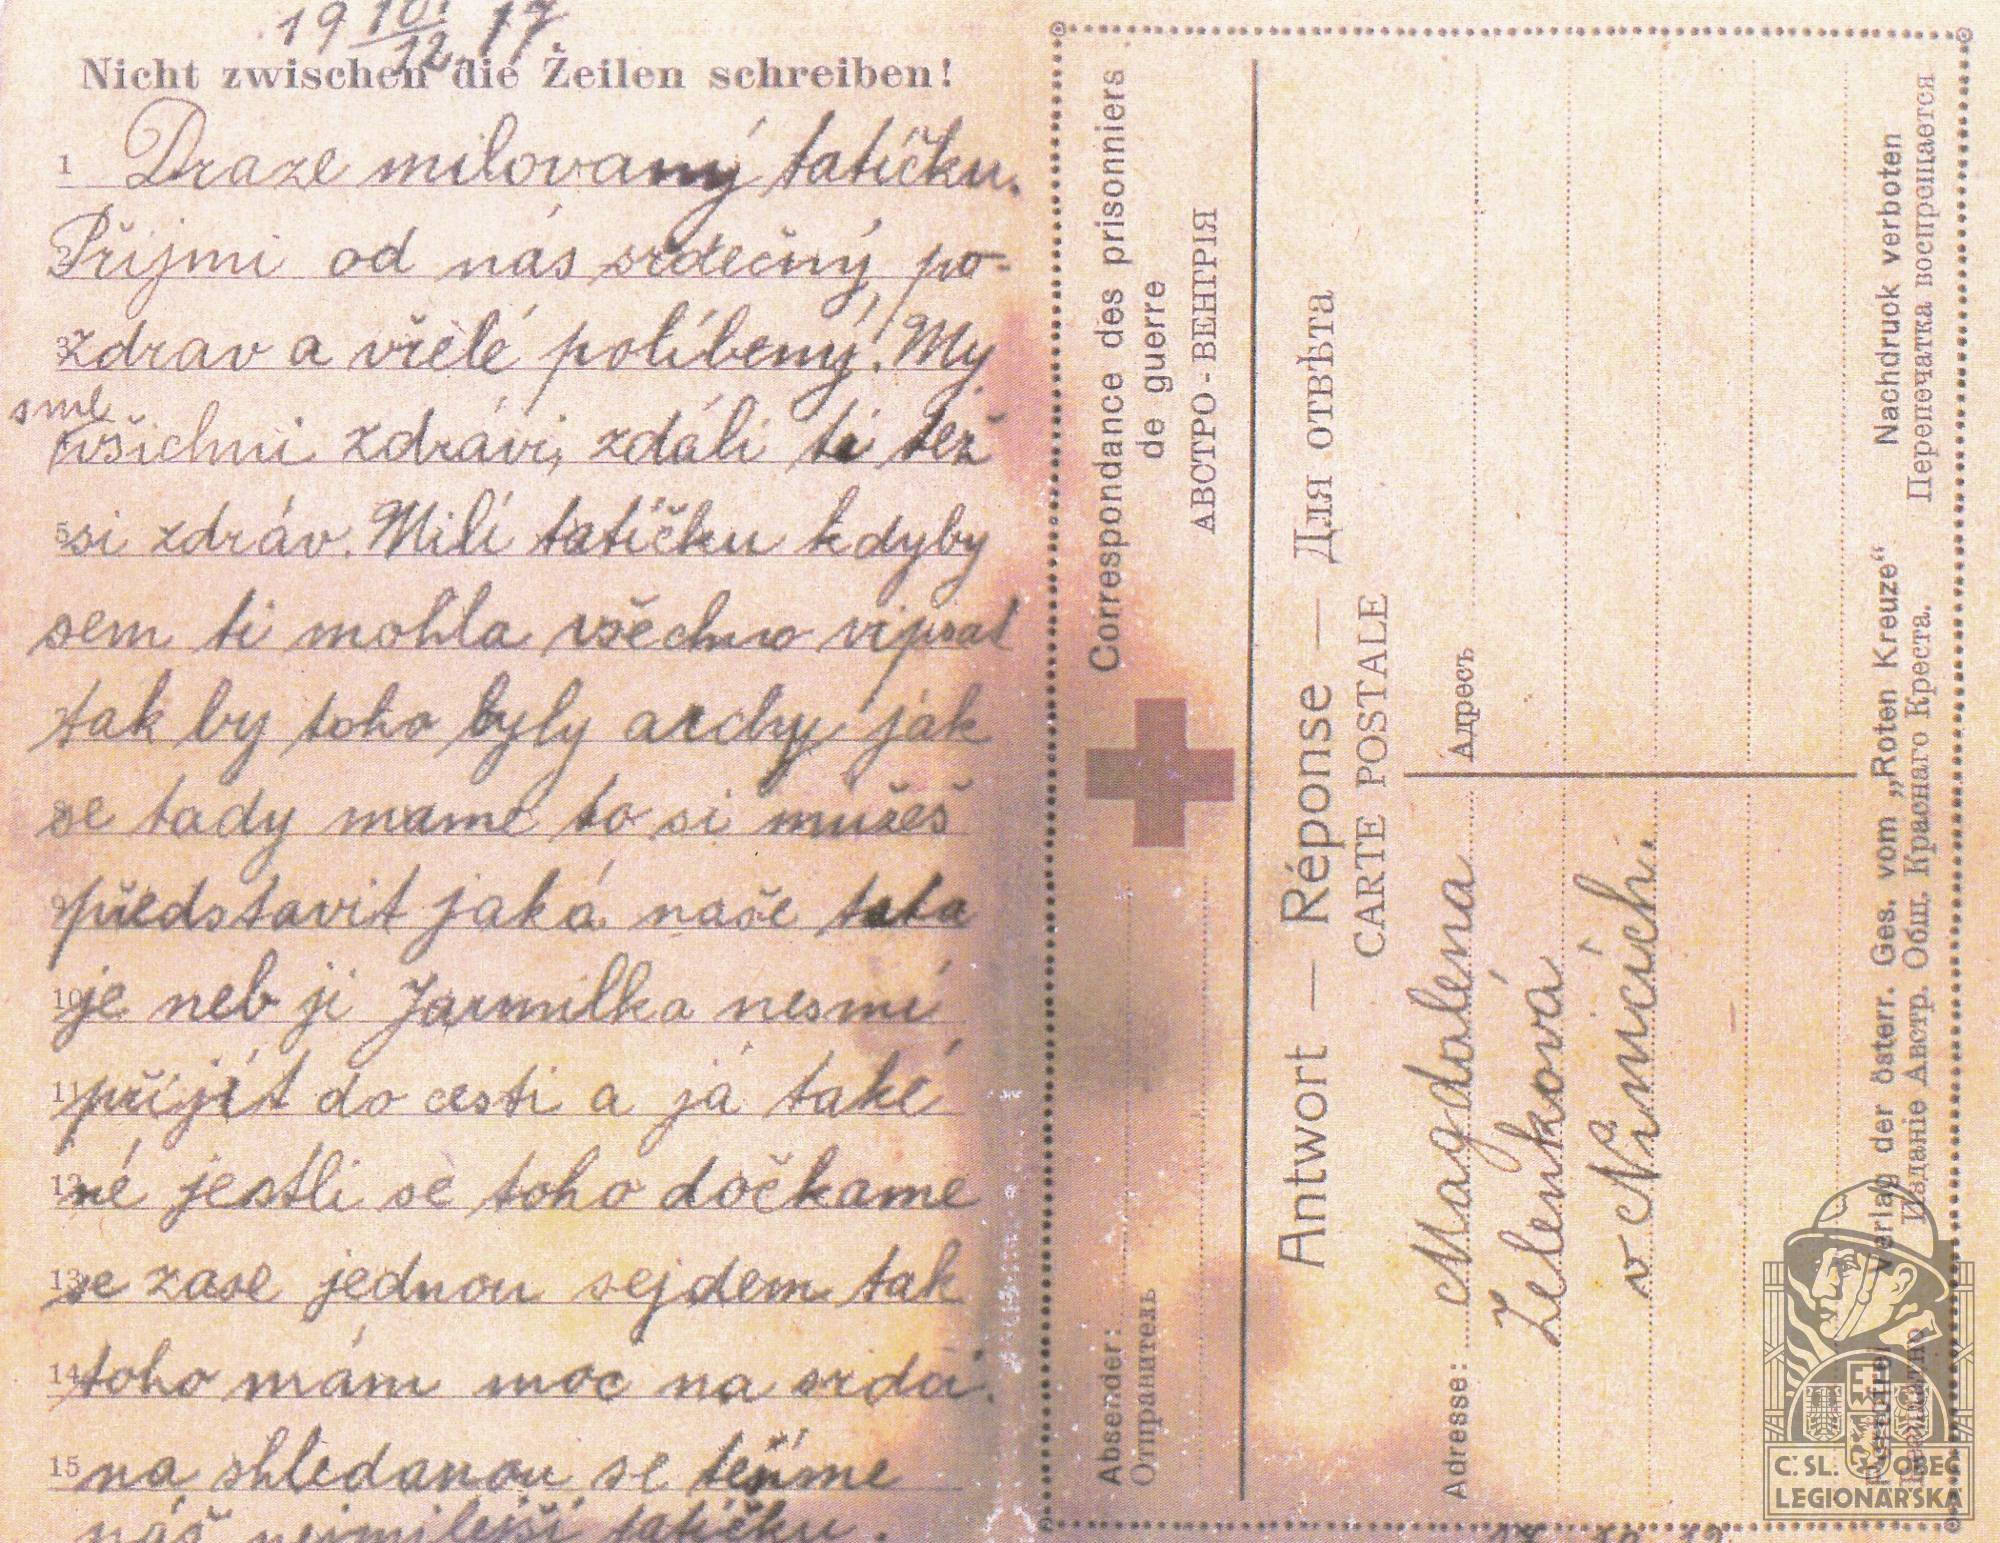 19 10/12 17
Nicht zwischen die Zeilen schreiben!
1 Draze milovaný tatíčku.
Příjmi od nás srdečný po-
3 zdrav a vřelé políbený! My
sme
všichni zdrávi, zdáli ti též
5 si zdráv. Milí tatíčku kdyby
sem ti mohla všechno vipsat
tak by toho byly archy jak
se tady mame to si mužeš
9 představit jaká naše tata
10 je neb ji Jarmilka nesmí
11 příjít do cesti a já také
12 né jestli se toho dočkame
13 se zase jednou sejdem tak
14 toho mám moc na srdci.
15 na shledanou se těšíme
náš nejmilejší tatíčku.
Correspondance des prisonniers
de guerre
АВСТРО-ВЕНГРІЯ
Absender:
Отправитель
Antwort — Réponse — Для отвѣта
CARTE POSTALE
Адресъ
Adresse: Magdalena
Zelenková
v Ninicích.
Portofrei Verlag der österr. Ges. vom „Roten Kreuze“ Nachdruck verboten
Изданіе Австр. Общ. Краснаго Креста. Перепечатка воспрощается
Č. SL. OBEC
LEGIONÁŘSKÁ